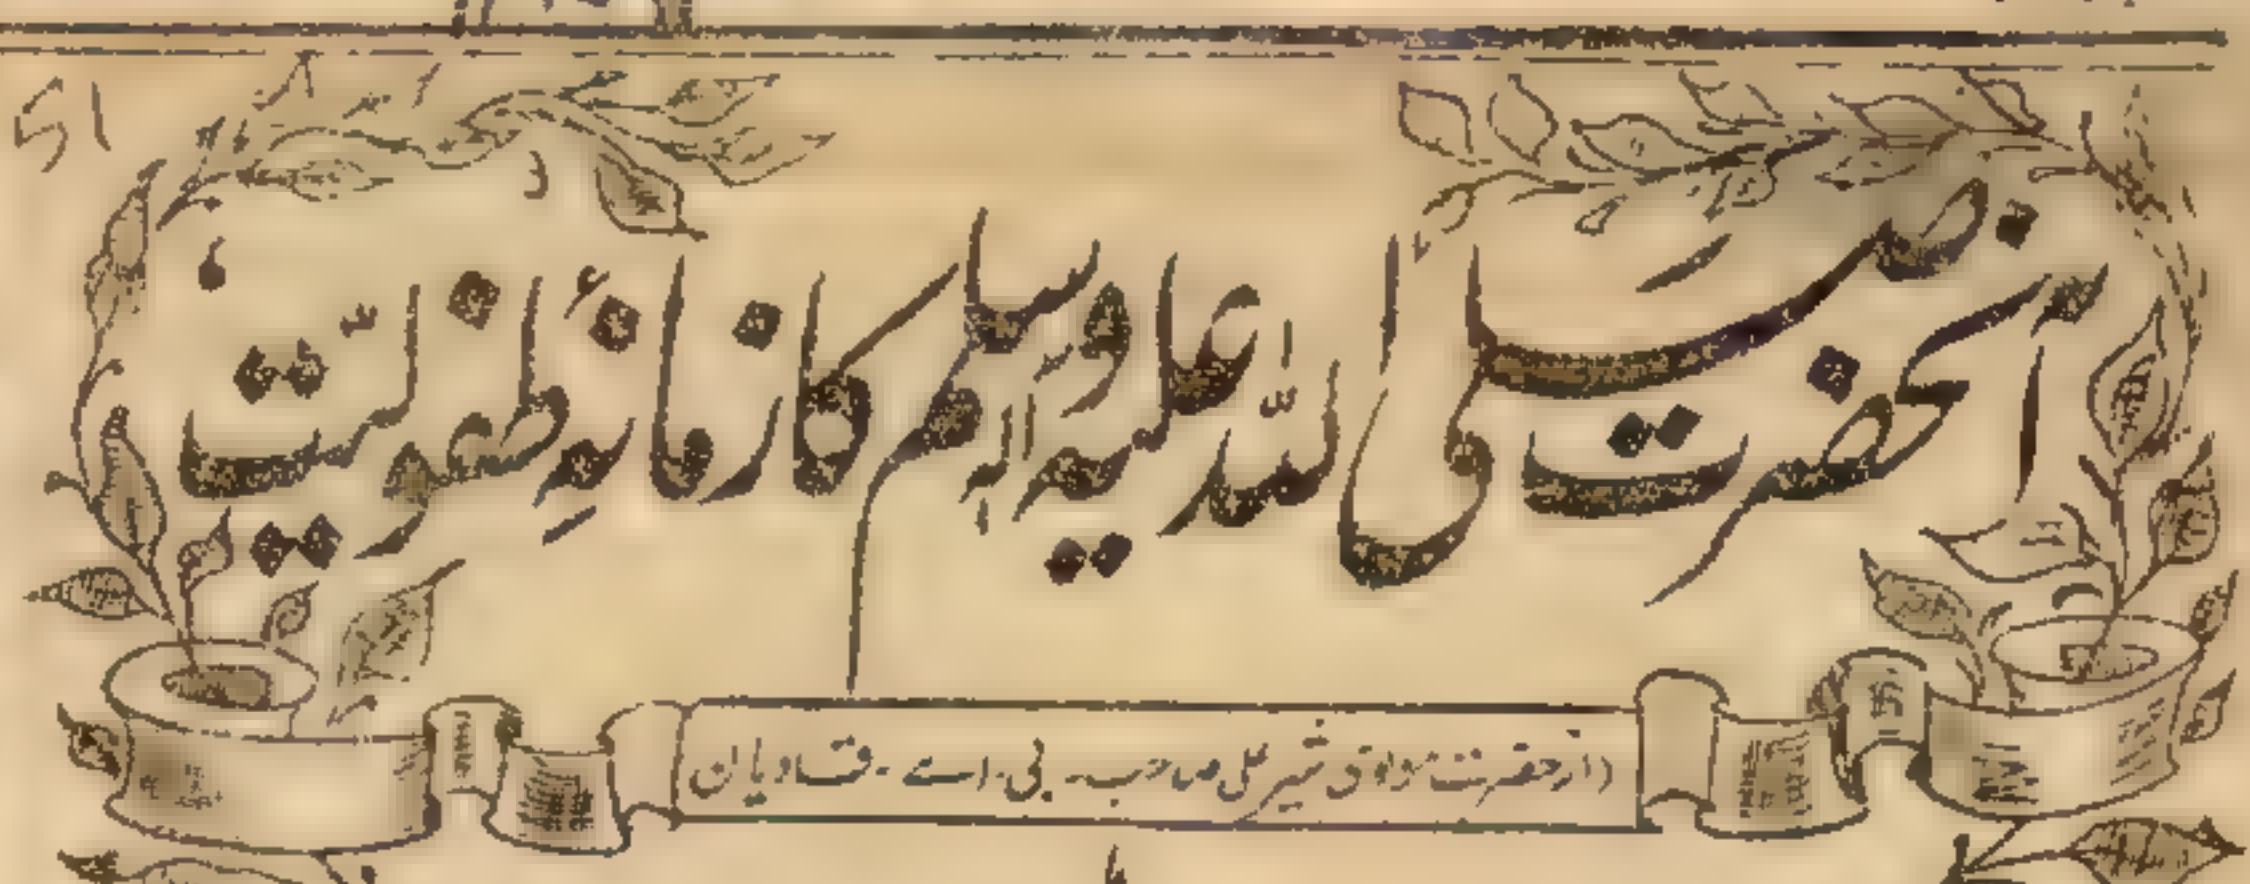 آنحضرت صلی اللہ علیہ وآلہ وسلم کا زمانۂ طفولیّت
(از حضرت مولوی شیر علی صاحب۔ بی۔اے۔ قادیان